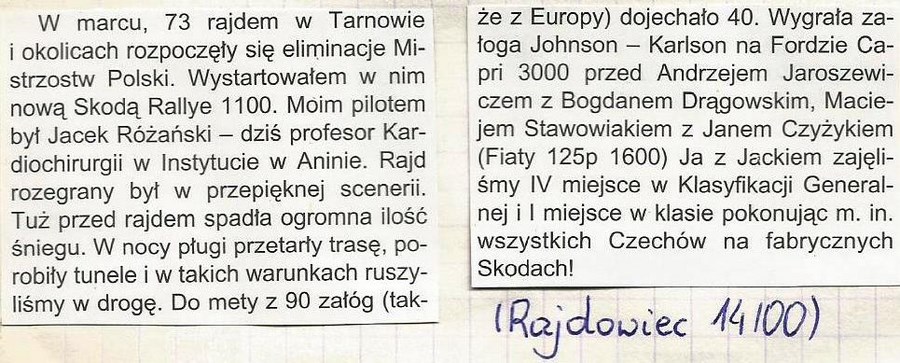 W marcu, 73 rajdem w Tarnowie
i okolicach rozpoczęły się eliminacje Mi-
strzostw Polski. Wystartowałem w nim
nową Skodą Rallye 1100. Moim pilotem
był Jacek Różański – dziś profesor Kar-
diochirurgii w Instytucie w Aninie. Rajd
rozegrany był w przepięknej scenerii.
Tuż przed rajdem spadła ogromna ilość
śniegu. W nocy pługi przetarły trasę, po-
robiły tunele i w takich warunkach ruszy-
liśmy w drogę. Do mety z 90 załóg (tak-
że z Europy) dojechało 40. Wygrała za-
łoga Johnson – Karlson na Fordzie Ca-
pri 3000 przed Andrzejem Jaroszewi-
czem z Bogdanem Drągowskim, Macie-
jem Stawowiakiem z Janem Czyżykiem
(Fiaty 125p 1600) Ja z Jackiem zajęli-
śmy IV miejsce w Klasyfikacji General-
nej i I miejsce w klasie pokonując m. in.
wszystkich Czechów na fabrycznych
Skodach!
(Rajdowiec 14/00)